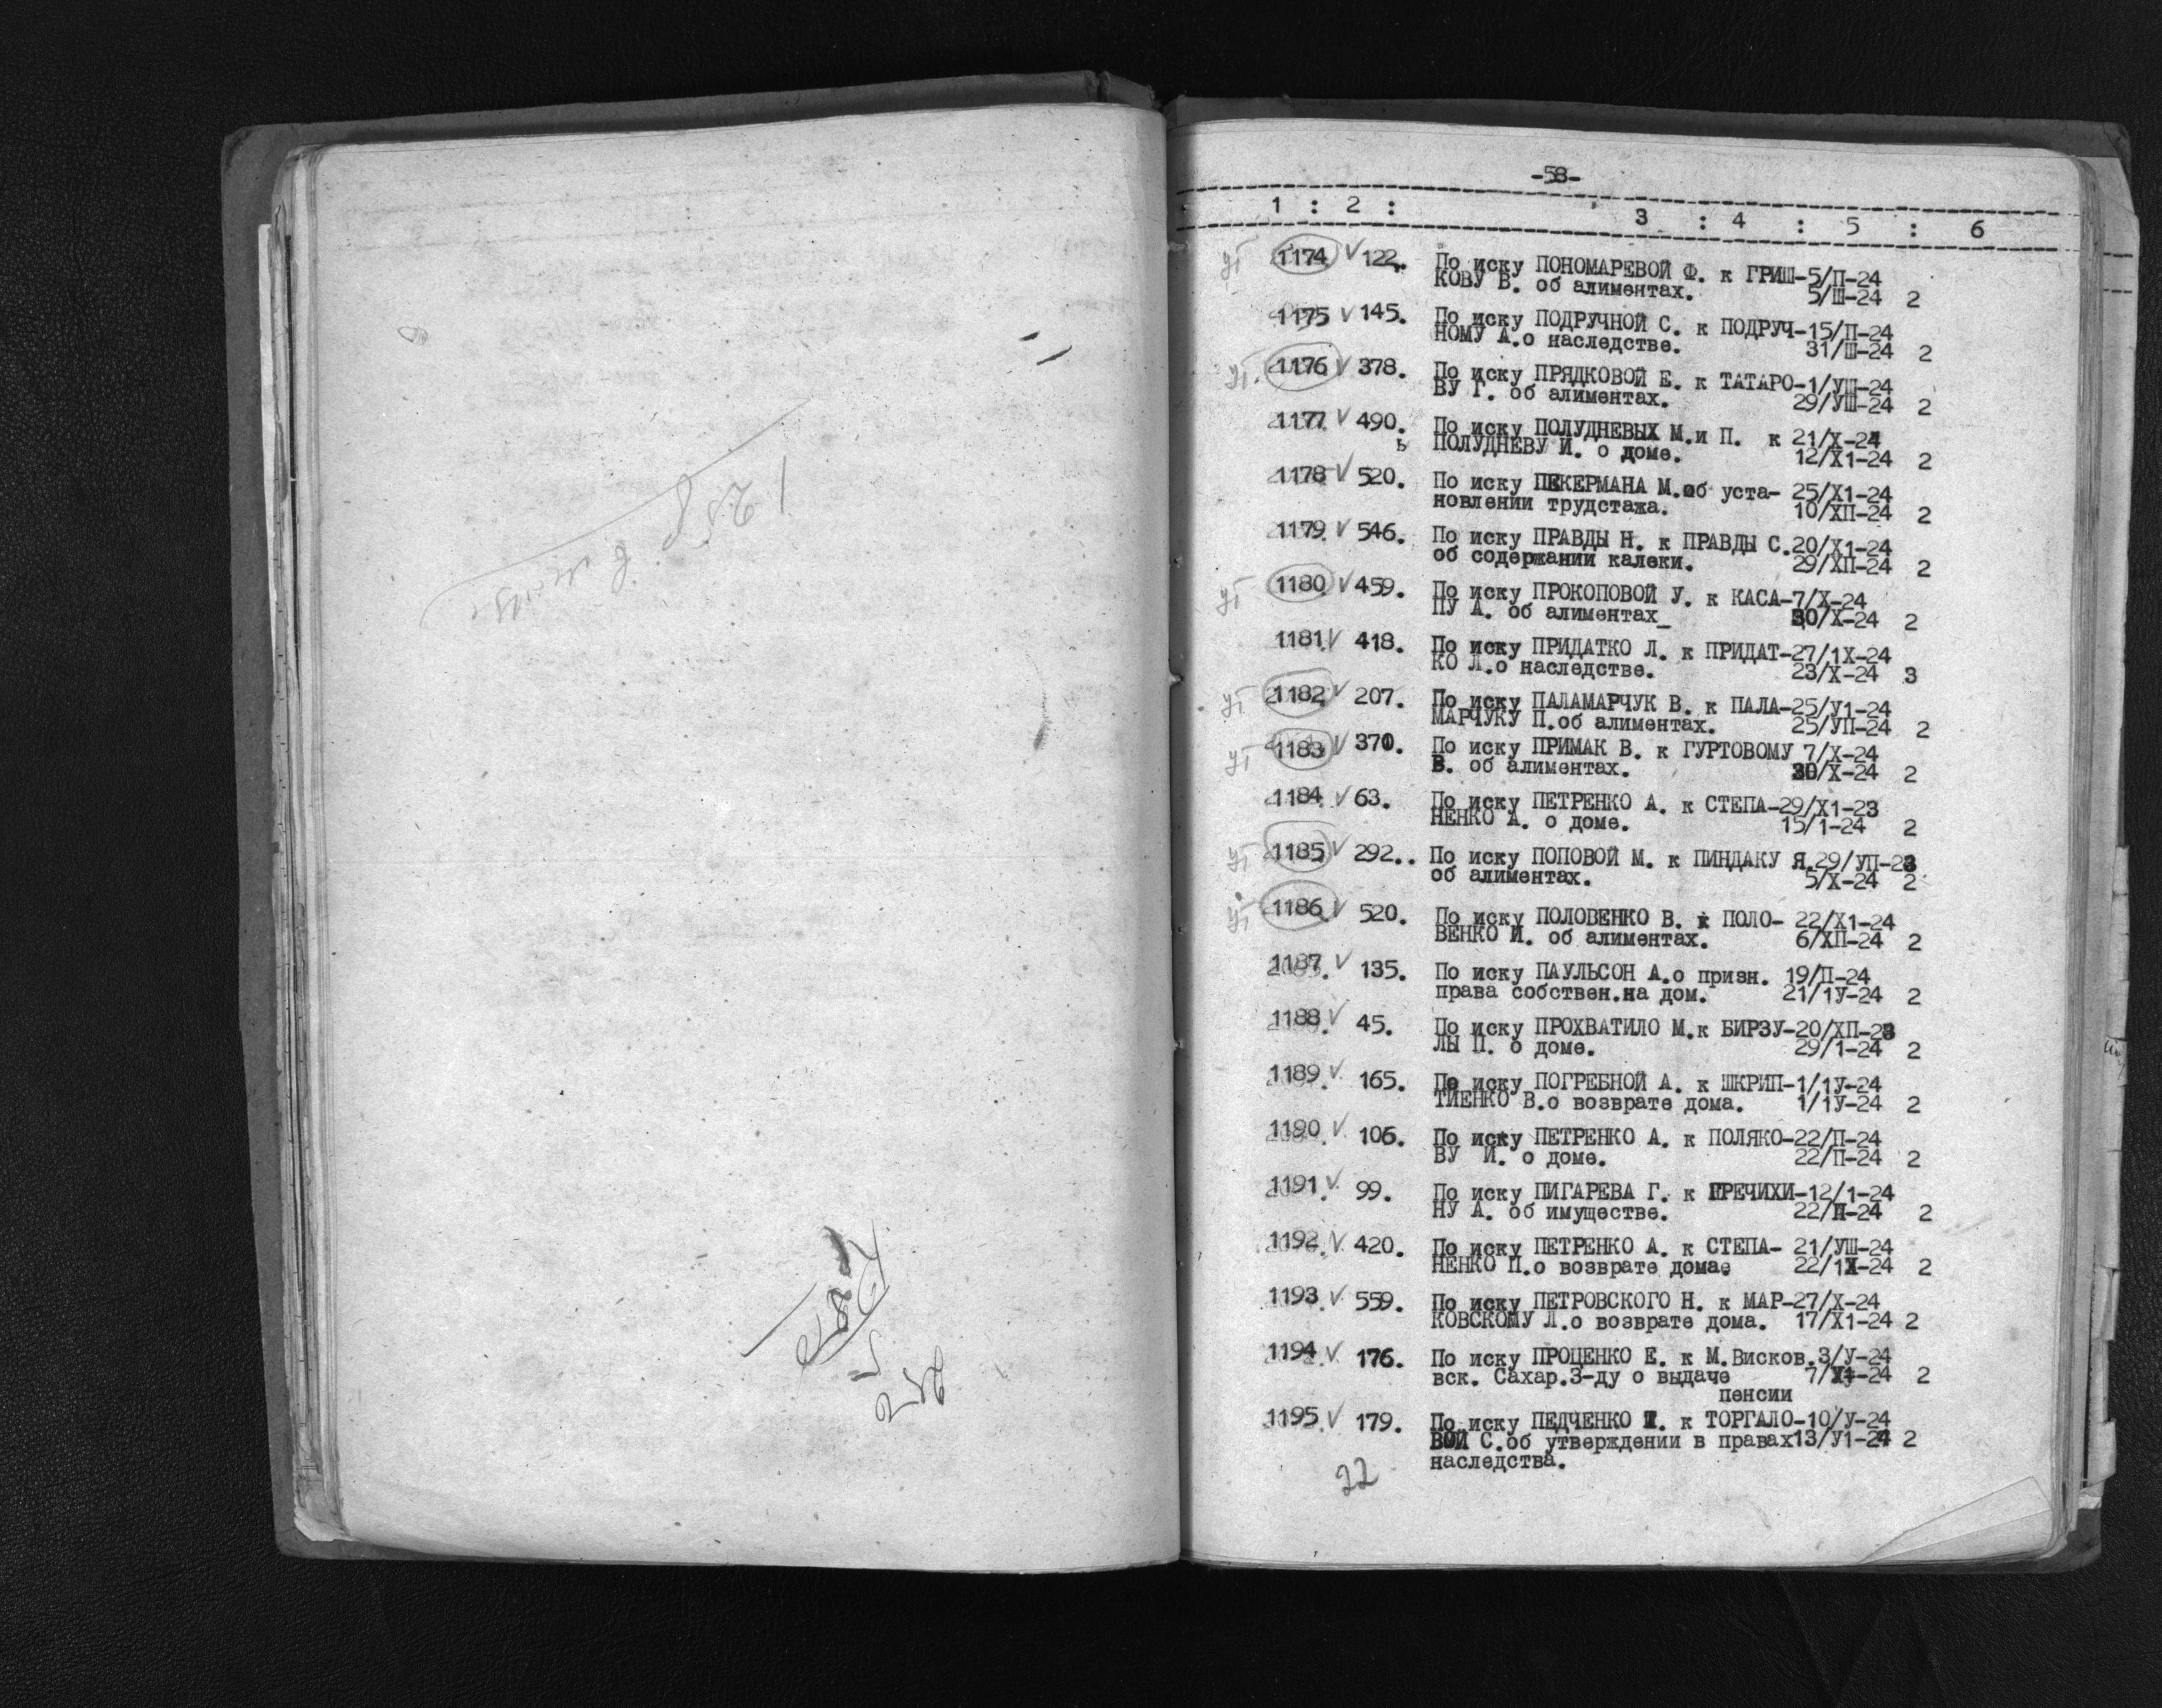 -58-
1 : 2 : 3 : 4 : 5 : 6
1174 122. По иску ПОНОМАРЕВОЙ Ф. к ГРИШ-5/П-24
КОВУ В. об алиментах. 5/Ш-24 2
1175 145. По иску ПОДРУЧНОЙ С. к ПОДРУЧ-15/П-24
НОМУ А.о наследстве. 31/Ш-24 2
1176 378. По иску ПРЯДКОВОЙ Е. к ТАТАРО-1/УШ-24
ВУ Г. об алиментах. 29/УШ-24 2
1177 490. По иску ПОЛУДНЕВЫХ М.и П. к 21/Х-24
ПОЛУДНЕВУ И. о доме. 12/Х1-24 2
1178 520. По иску ПЕКЕРМАНА М.об уста- 25/Х1-24
новлении трудстажа. 10/ХП-24 2
1179 546. По иску ПРАВДЫ Н. к ПРАВДЫ С.20/Х1-24
об содержании калеки. 29/ХП-24 2
1180 459. По иску ПРОКОПОВОЙ У. к КАСА-7/Х-24
ПУ А. об алиментах_ 30/Х-24 2
1181 418. По иску ПРИДАТКО Л. к ПРИДАТ-27/1Х-24
КО Л.о наследстве. 23/Х-24 3
1182 207. По иску ПАЛАМАРЧУК В. к ПАЛА-25/У1-24
МАРЧУКУ П.об алиментах. 25/УП-24 2
1183 370. По иску ПРИМАК В. к ГУРТОВОМУ 7/Х-24
В. об алиментах. 30/Х-24 2
1184 63. По иску ПЕТРЕНКО А. к СТЕПА-29/Х1-23
НЕНКО А. о доме. 15/1-24 2
1185 292.. По иску ПОПОВОЙ М. к ПИНДАКУ Я.29/УП-23
об алиментах. 5/Х-24 2
1186 520. По иску ПОЛОВЕНКО В. к ПОЛО- 22/Х1-24
ВЕНКО И. об алиментах. 6/ХП-24 2
1187 135. По иску ПАУЛЬСОН А.о призн. 19/П-24
права собствен.на дом. 21/1У-24 2
1188 45. По иску ПРОХВАТИЛО М.к БИРЗУ-20/ХП-23
ЛЫ П. о доме. 29/1-24 2
1189 165. По иску ПОГРЕБНОЙ А. к ШКРИП-1/1У-24
ТИЕНКО В.о возврате дома. 1/1У-24 2
1190 106. По иску ПЕТРЕНКО А. к ПОЛЯКО-22/П-24
ВУ И. о доме. 22/П-24 2
1191 99. По иску ПИГАРЕВА Г. к ГРЕЧИХИ-12/1-24
НУ А. об имуществе. 22/П-24 2
1192 420. По иску ПЕТРЕНКО А. к СТЕПА- 21/УШ-24
НЕНКО П.о возврате дома. 22/1Х-24 2
1193 559. По иску ПЕТРОВСКОГО Н. к МАР-27/Х-24
КОВСКОМУ Л.о возврате дома. 17/Х1-24 2
1194 176. По иску ПРОЦЕНКО Е. к М.Висков.3/У-24
вск. Сахар.З-ду о выдаче 7/ -24 2
пенсии
1195 179. По иску ПЕДЧЕНКО к ТОРГАЛО-10/У-24
ВОЙ С.об утверждении в правах13/У1-24 2
наследства.
22